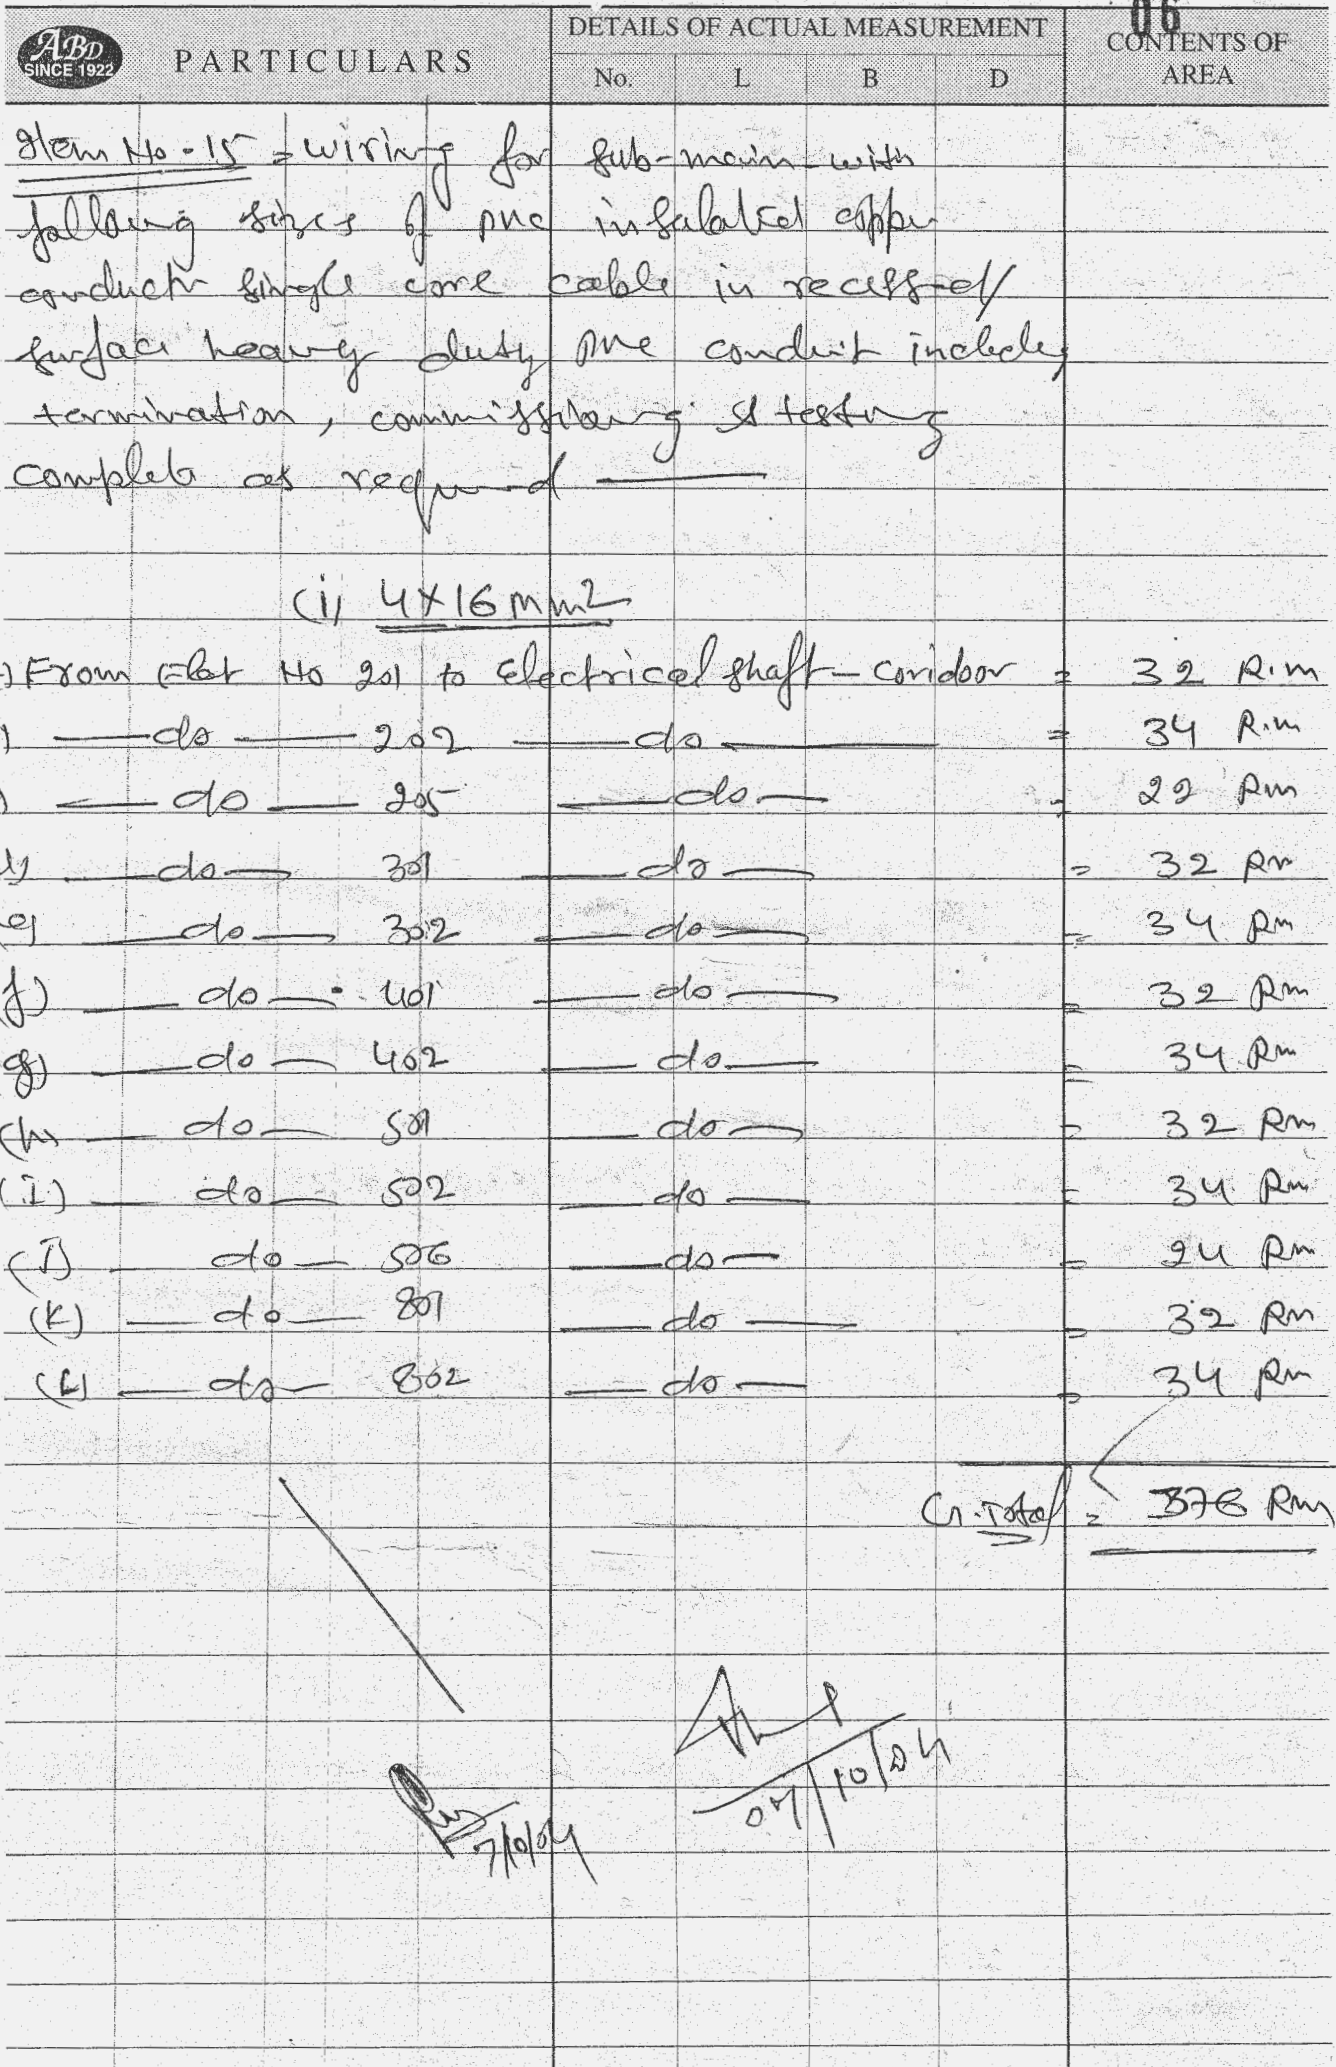 06
ABD
SINCE 1922
PARTICULARS
DETAILS OF ACTUAL MEASUREMENT
No. L B D
CONTENTS OF
AREA
Item No - 15 = wiring for sub-main with
following sizes of pvc insulated copper
conductor single core cable in recessed/
surface heavy duty pvc conduit including
termination, commissioning & testing
complete as required ——
(i) 4X16 mm2
) From Flat No 201 to Electrical shaft - coridoor = 32 R.m
) — do — 202 — do — = 34 R.m
) — do — 205 — do — = 22 Rm
d) — do — 301 — do — = 32 Rm
e) — do — 302 — do — = 34 Rm
f) — do — 401 — do — = 32 Rm
g) — do — 402 — do — = 34 Rm
(h) — do — 501 — do — = 32 Rm
(I) — do — 502 — do — = 34 Rm
(J) — do — 506 — do — = 24 Rm
(K) — do — 801 — do — = 32 Rm
(L) — do — 802 — do — = 34 Rm
G. Total = 376 Rm
07/10/04
7/10/04